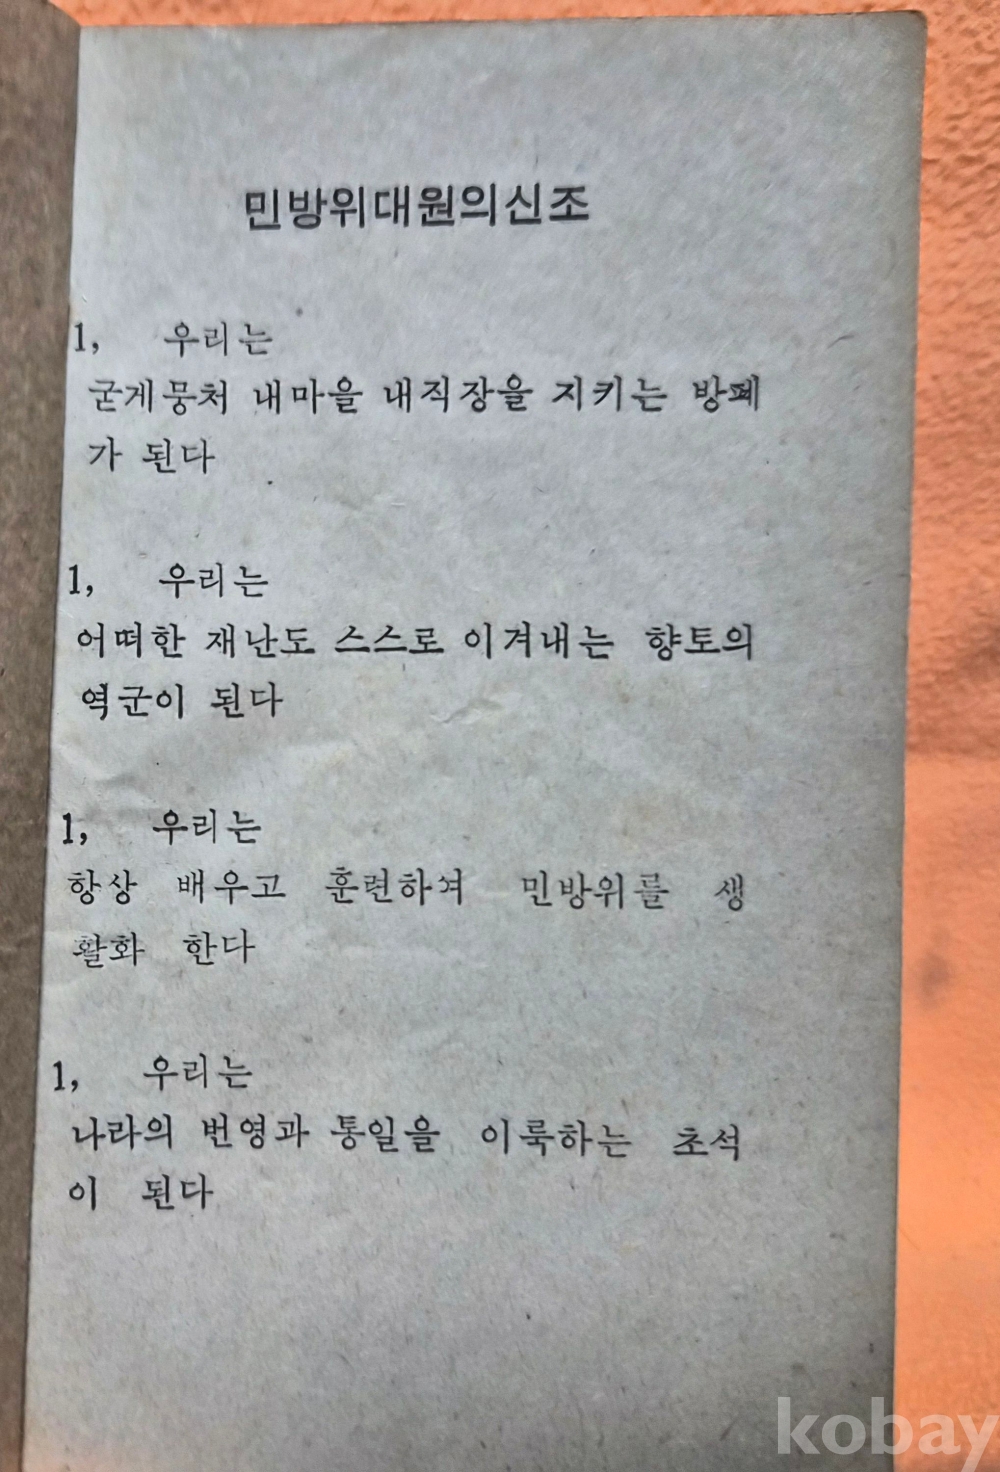 민방위대원의신조
1, 우리는
굳게뭉처 내마을 내직장을 지키는 방폐
가 된다
1, 우리는
어떠한 재난도 스스로 이겨내는 향토의
역군이 된다
1, 우리는
항상 배우고 훈련하여 민방위를 생
활화 한다
1, 우리는
나라의 번영과 통일을 이룩하는 초석
이 된다
kobay